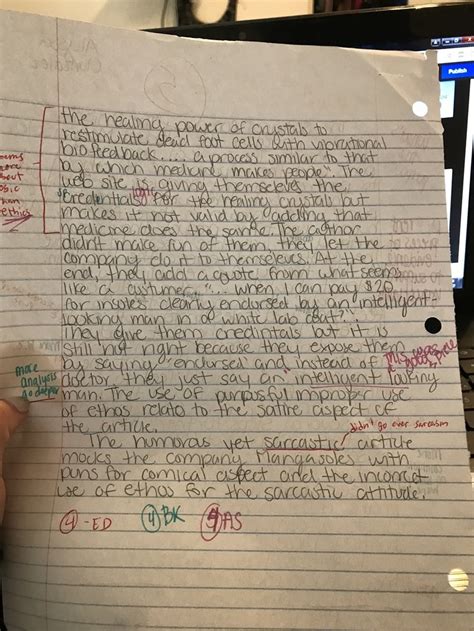 Publish
the healing power of crystals to
restimulate dead foot cells with vibrational
biofeedback.... a process similar to that
by which medicine makes people". The
web site is giving themselves the
credentials for the healing crystals but
logic
makes it not valid by adding that
medicine does the same. The author
didn't make fun of them, they let the
company do it to themselves. At the
end, they add a quote from what seems
like a custumer, "... when I can pay $20
for insoles clearly endorsed by an intelligent-
looking man in a white lab coat?"
They give them credintals but it is
still not right because they expose them
by saying "endorsed" and instead of a
doctor they just say an "intelligent looking
man. The use of purposful improper use
of ethos relato to the satire aspect of
the article.
more
analysis
go deeper
didn't go over sarcasm
The humorous yet sarcastic article
mocks the company Mangasoles with
puns for comical aspect and the incorrect
use of ethos for the sarcastic attitude.
4 -ED 4 BK AS